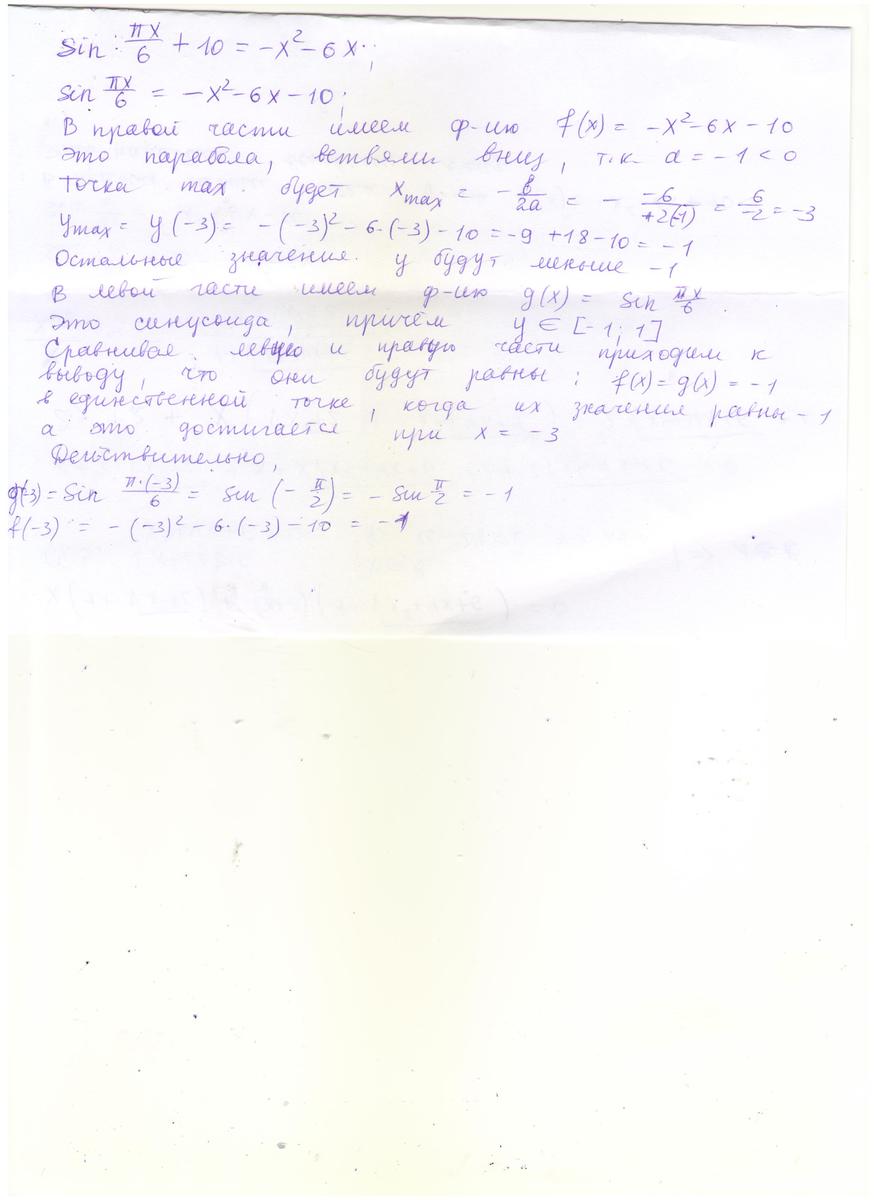 Sin πx/6 + 10 = -x² - 6x;
sin πx/6 = -x² - 6x - 10;
В правой части имеем ф-ию f(x) = -x² - 6x - 10
Это парабола, ветвями вниз, т.к. a = -1 < 0
Точка max будет x max = - b/2a = - -6/+2(-1) = 6/-2 = -3
y max = y(-3) = -(-3)² - 6·(-3) - 10 = -9 + 18 - 10 = -1
Остальные значения y будут меньше -1
В левой части имеем ф-ию g(x) = sin πx/6
Это синусоида, причём y ∈ [-1; 1]
Сравнивая левую и правую части приходим к
выводу, что они будут равны: f(x) = g(x) = -1
в единственной точке, когда их значения равны -1
а это достигается при x = -3
Действительно,
g(-3) = Sin π·(-3)/6 = sin (-π/2) = -sin π/2 = -1
f(-3) = -(-3)² - 6·(-3) - 10 = -1